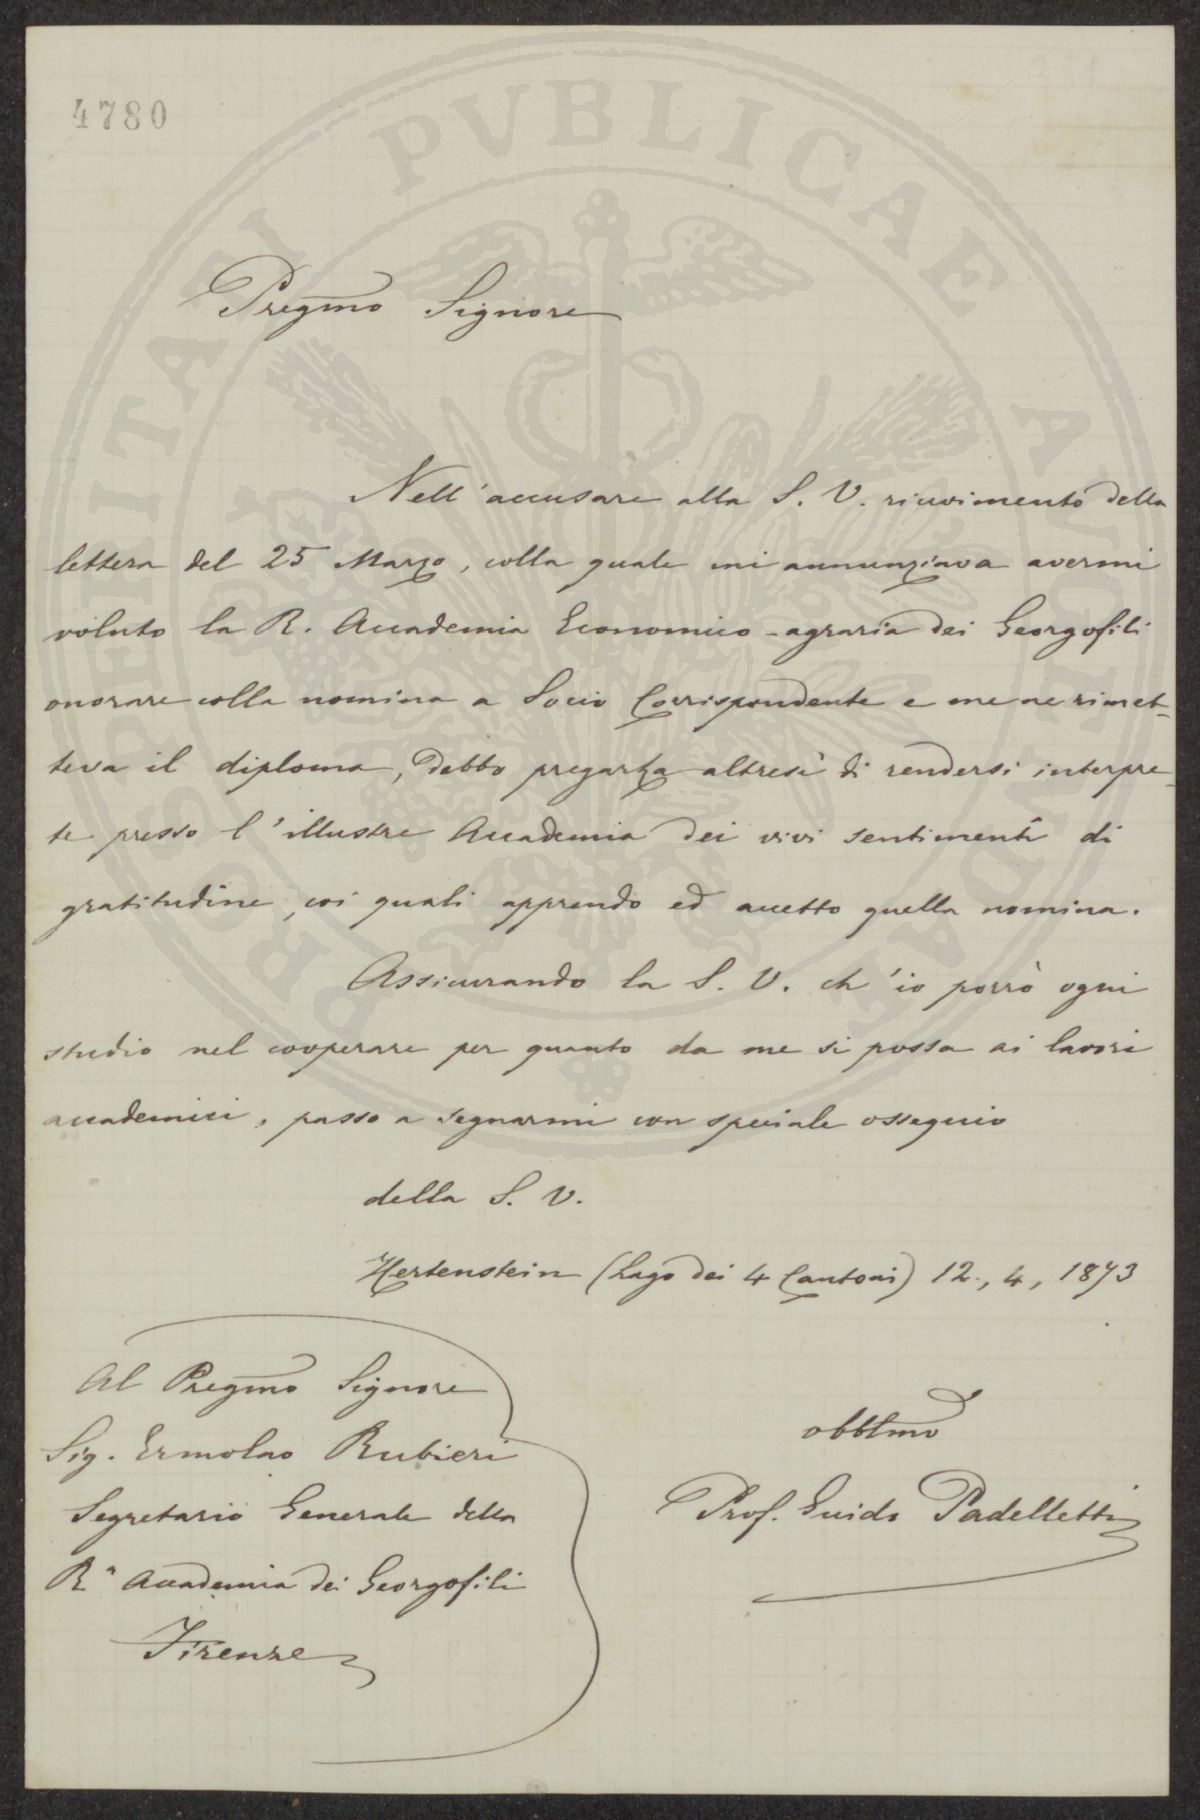 4780
PROSPERITATI PVBLICAE AVGENDAE
Pregmo Signore
Nell'accusare alla S. V. ricevimento della
lettera del 25 Marzo, colla quale mi annunziava avermi
voluto la R. Accademia Economico-agraria dei Georgofili
onorare colla nomina a Socio Corrispondente e me ne rimet-
teva il diploma, debbo pregarla altresì di rendersi interpre-
te presso l'illustre Accademia dei vivi sentimenti di
gratitudine, coi quali apprendo ed accetto quella nomina.
Assicurando la S. V. ch'io porrò ogni
studio nel cooperare per quanto da me si possa ai lavori
accademici, passo a segnarmi con speciale ossequio
della S. V.
Hertenstein (Lago dei 4 Cantoni) 12., 4, 1873
Al Pregmo Signore
Sig. Ermolao Rubieri
Segretario Generale della
Ra Accademia dei Georgofili
Firenze
obblmo
Prof. Guido Padelletti